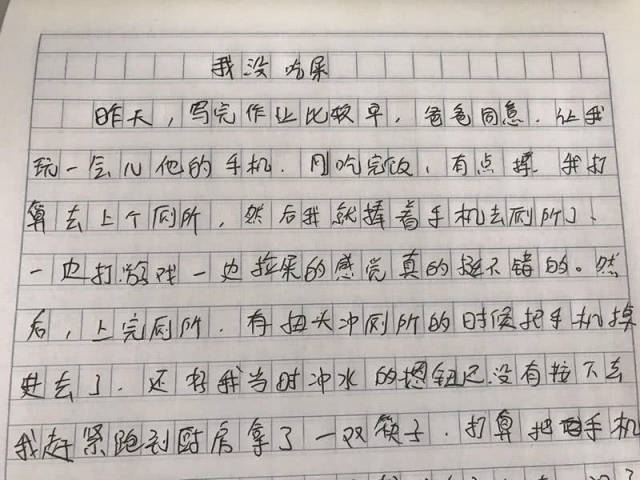 我没吃屎
昨天，写完作业比较早，爸爸同意．让我
玩一会儿他的手机．刚吃完饭，有点撑．我打
算去上个厕所，然后我就捧着手机去厕所了、
一边打游戏一边拉屎的感觉真的挺不错的。然
后，上完厕所．在扭头冲厕所的时候把手机掉
进去了．还好我当时冲水的按钮还没有按下去
我赶紧跑到厨房拿了一双筷子．打算把手机